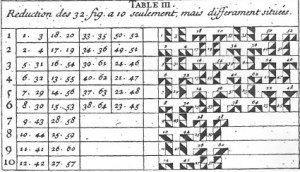 TABLE III.
Reduction des 32. fig. a 10 seulement, mais differament situées.
1 1. 3 18. 20 33. 35 50. 52
2 2. 4 17. 19 34. 36 49. 51
3 5. 31 16. 54 39. 61 24. 46
4 6. 32 13. 55 40. 62 21. 47
5 7. 29 14. 56 37. 63 22. 48
6 8. 30 15. 53 38. 64 23. 45
7 9. 43 28. 58
8 10. 44 25. 59
9 11. 41 26. 60
10 12. 42 27. 57